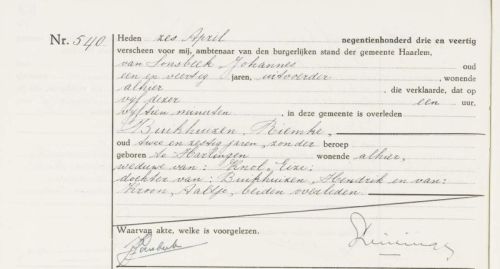 Nr. 540 Heden zes April negentienhonderd drie en veertig
verscheen voor mij, ambtenaar van den burgerlijken stand der gemeente Haarlem,
van Sonsbeek Johannes oud
een en veertig jaren, uitvoerder, wonende
alhier, die verklaarde, dat op
vijf dezer een uur.
vijftien minuten, in deze gemeente is overleden
Binkhuizen, Riemke,
oud twee en zestig jaren, zonder beroep
geboren te Harlingen wonende alhier,
weduwe van: Knol,
dochter van: Binkhuizen, Hendrik en van:
Kroon, Aaltje, beiden overleden.
Waarvan akte, welke is voorgelezen.